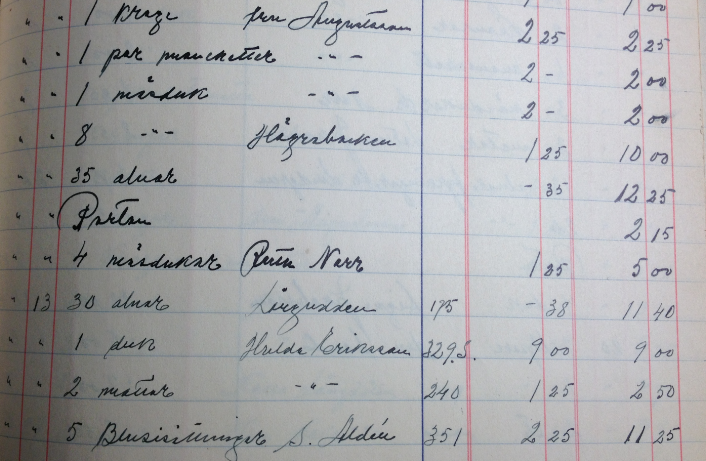 " " 1 krage fru Augustsson 1 00
" " 1 par manchetter - " - 2 25 2 25
" " 1 näsduk - " - 2 - 2 00
2 - 2 00
" " 8 - " - Högsbacken 1 25 10 00
" " 35 alnar - 35 12 25
" " Porton 2 15
" " 4 näsdukar Ruth Norr 1 25 5 00
" 13 30 alnar 175 - 38 11 40
" " 1 duk Hulda Eriksson 329 S. 9 00 9 00
" " 2 mattor - " - 240 1 25 2 50
" " 5 S. Aldén 351 2 25 11 25